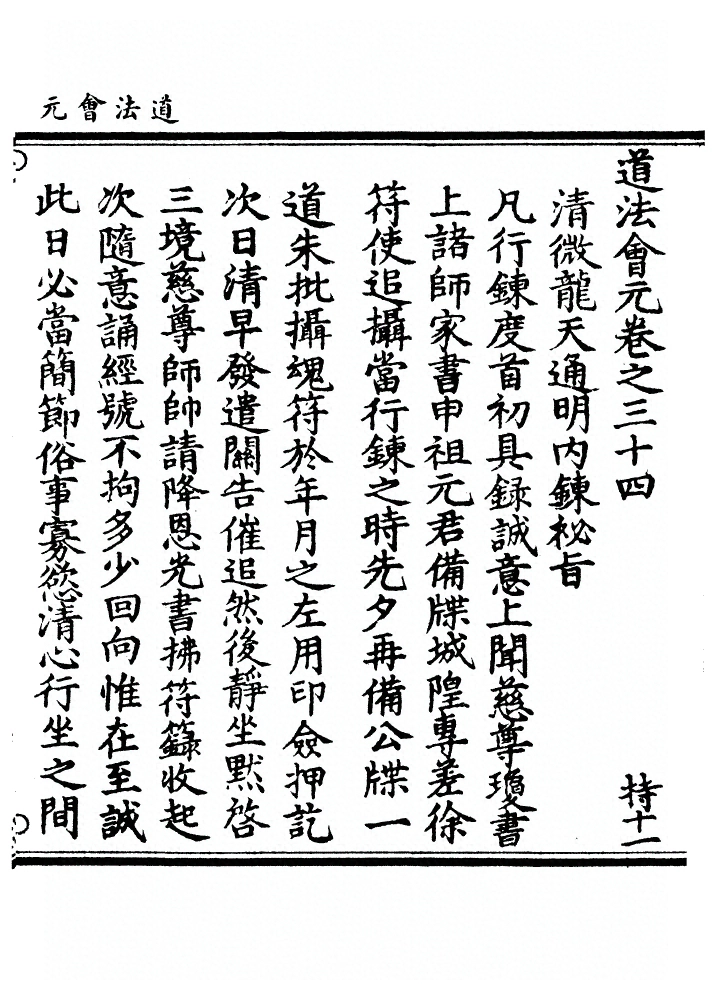 道法會元
道法會元卷之三十四 特十一
清微龍天通明內鍊秘旨
凡行鍊度首初具錄誠意上聞慈尊璦書
上諸師家書申祖元君備牒城隍專差徐
符使追攝當行鍊之時先夕再備公牒一
道朱批攝魂符於年月之左用印僉押訖
次日清早發遣關告催追然後靜坐默啓
三境慈尊師帥請降恩光書拂符籙收起
次隨意誦經號不拘多少回向惟在至誠
此日必當簡節俗事寡慾清心行坐之間